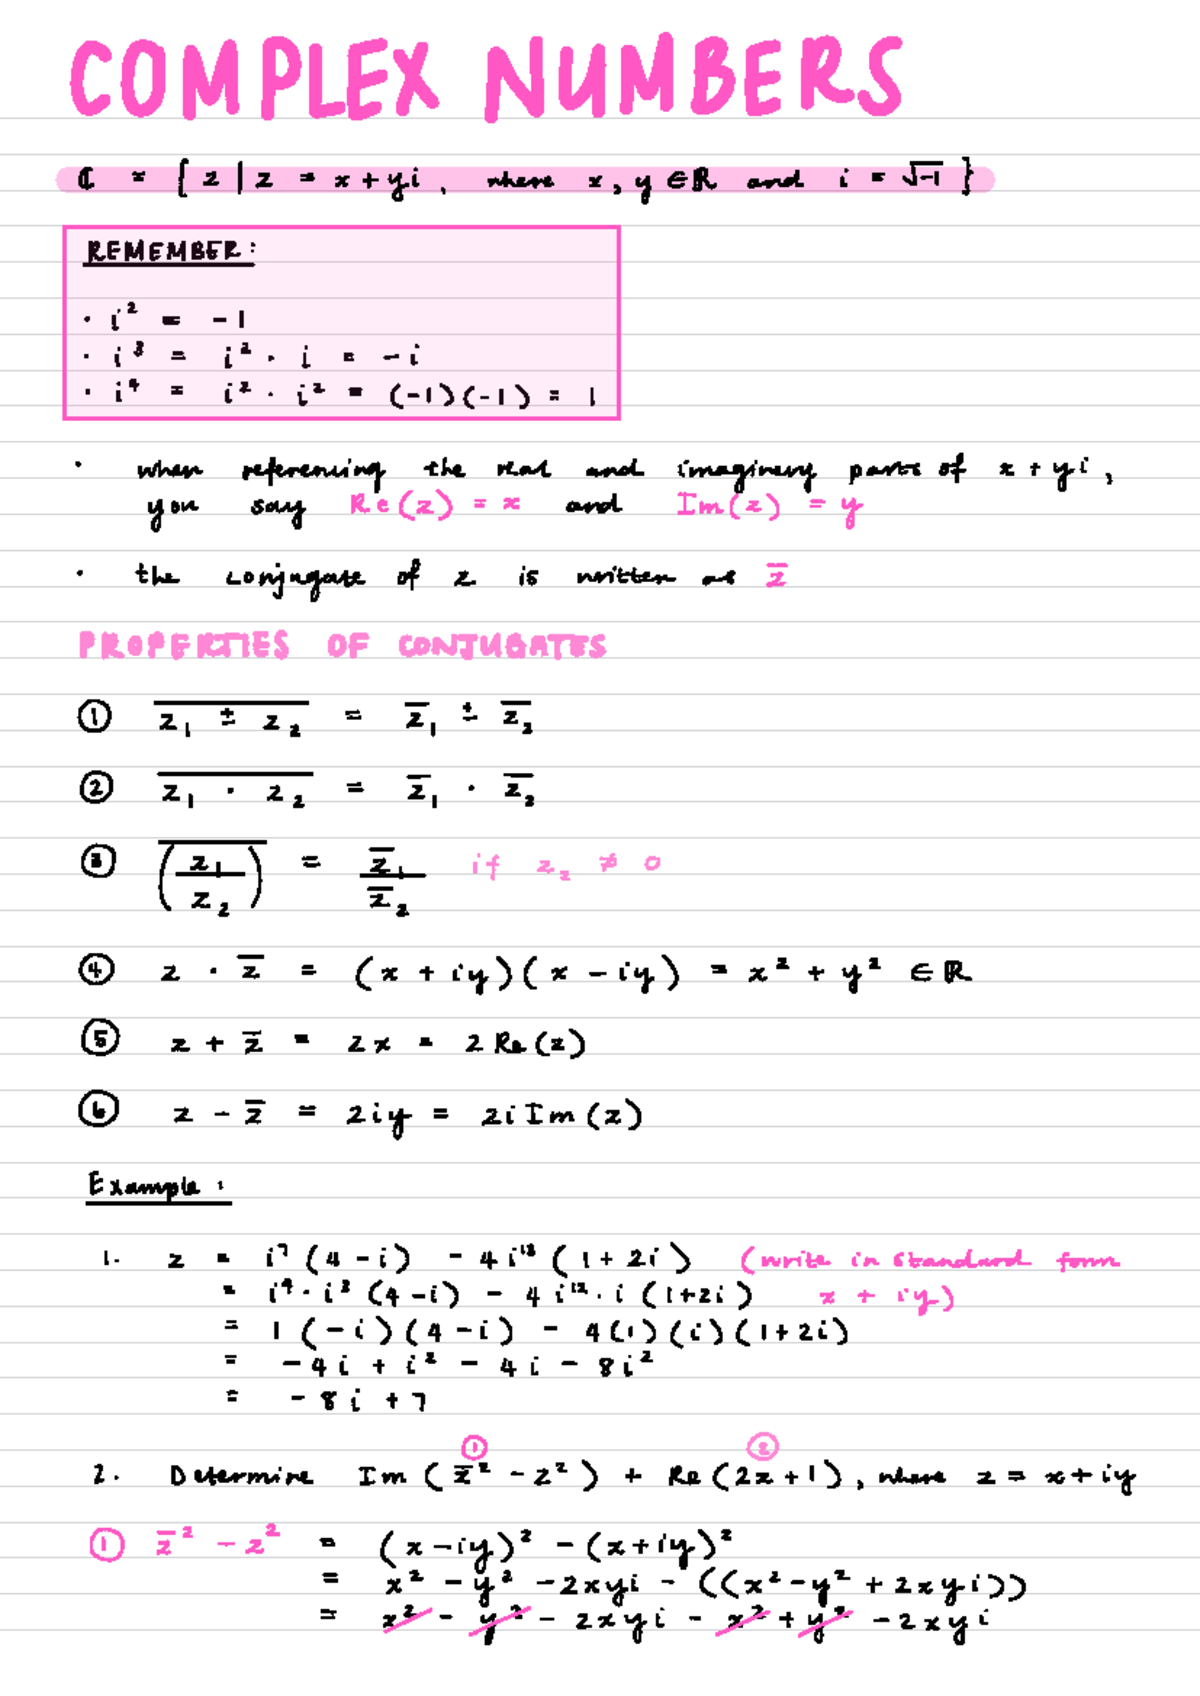 COMPLEX NUMBERS
ℂ = { z | z = x + yi, where x, y ∈ ℝ and i = √-1 }
REMEMBER:
· i² = -1
· i³ = i² · i = -i
· i⁴ = i² · i² = (-1)(-1) = 1
· when referencing the real and imaginery parts of x + yi,
you say Re(z) = x and Im(z) = y
· the conjugate of z is written as z̅
PROPERTIES OF CONJUGATES
① \overline{z₁ ± z₂} = z̅₁ ± z̅₂
② \overline{z₁ · z₂} = z̅₁ · z̅₂
③ \overline{(z₁/z₂)} = z̅₁/z̅₂ if z₂ ≠ 0
④ z · z̅ = (x + iy)(x - iy) = x² + y² ∈ ℝ
⑤ z + z̅ = 2x = 2 Re(z)
⑥ z - z̅ = 2iy = 2i Im(z)
Example:
1. z = i⁷(4 - i) - 4i¹³(1 + 2i) (write in standard form
= i⁴ · i³(4 - i) - 4i¹² · i(1+2i) x + iy)
= 1(-i)(4 - i) - 4(1)(i)(1 + 2i)
= -4i + i² - 4i - 8i²
= -8i + 7
① ②
2. Determine Im(z̅² - z²) + Re(2z + 1), where z = x + iy
① z̅² - z² = (x - iy)² - (x + iy)²
= x² - y² - 2xyi - ((x² - y² + 2xyi))
= x² - y² - 2xyi - x² + y² - 2xyi